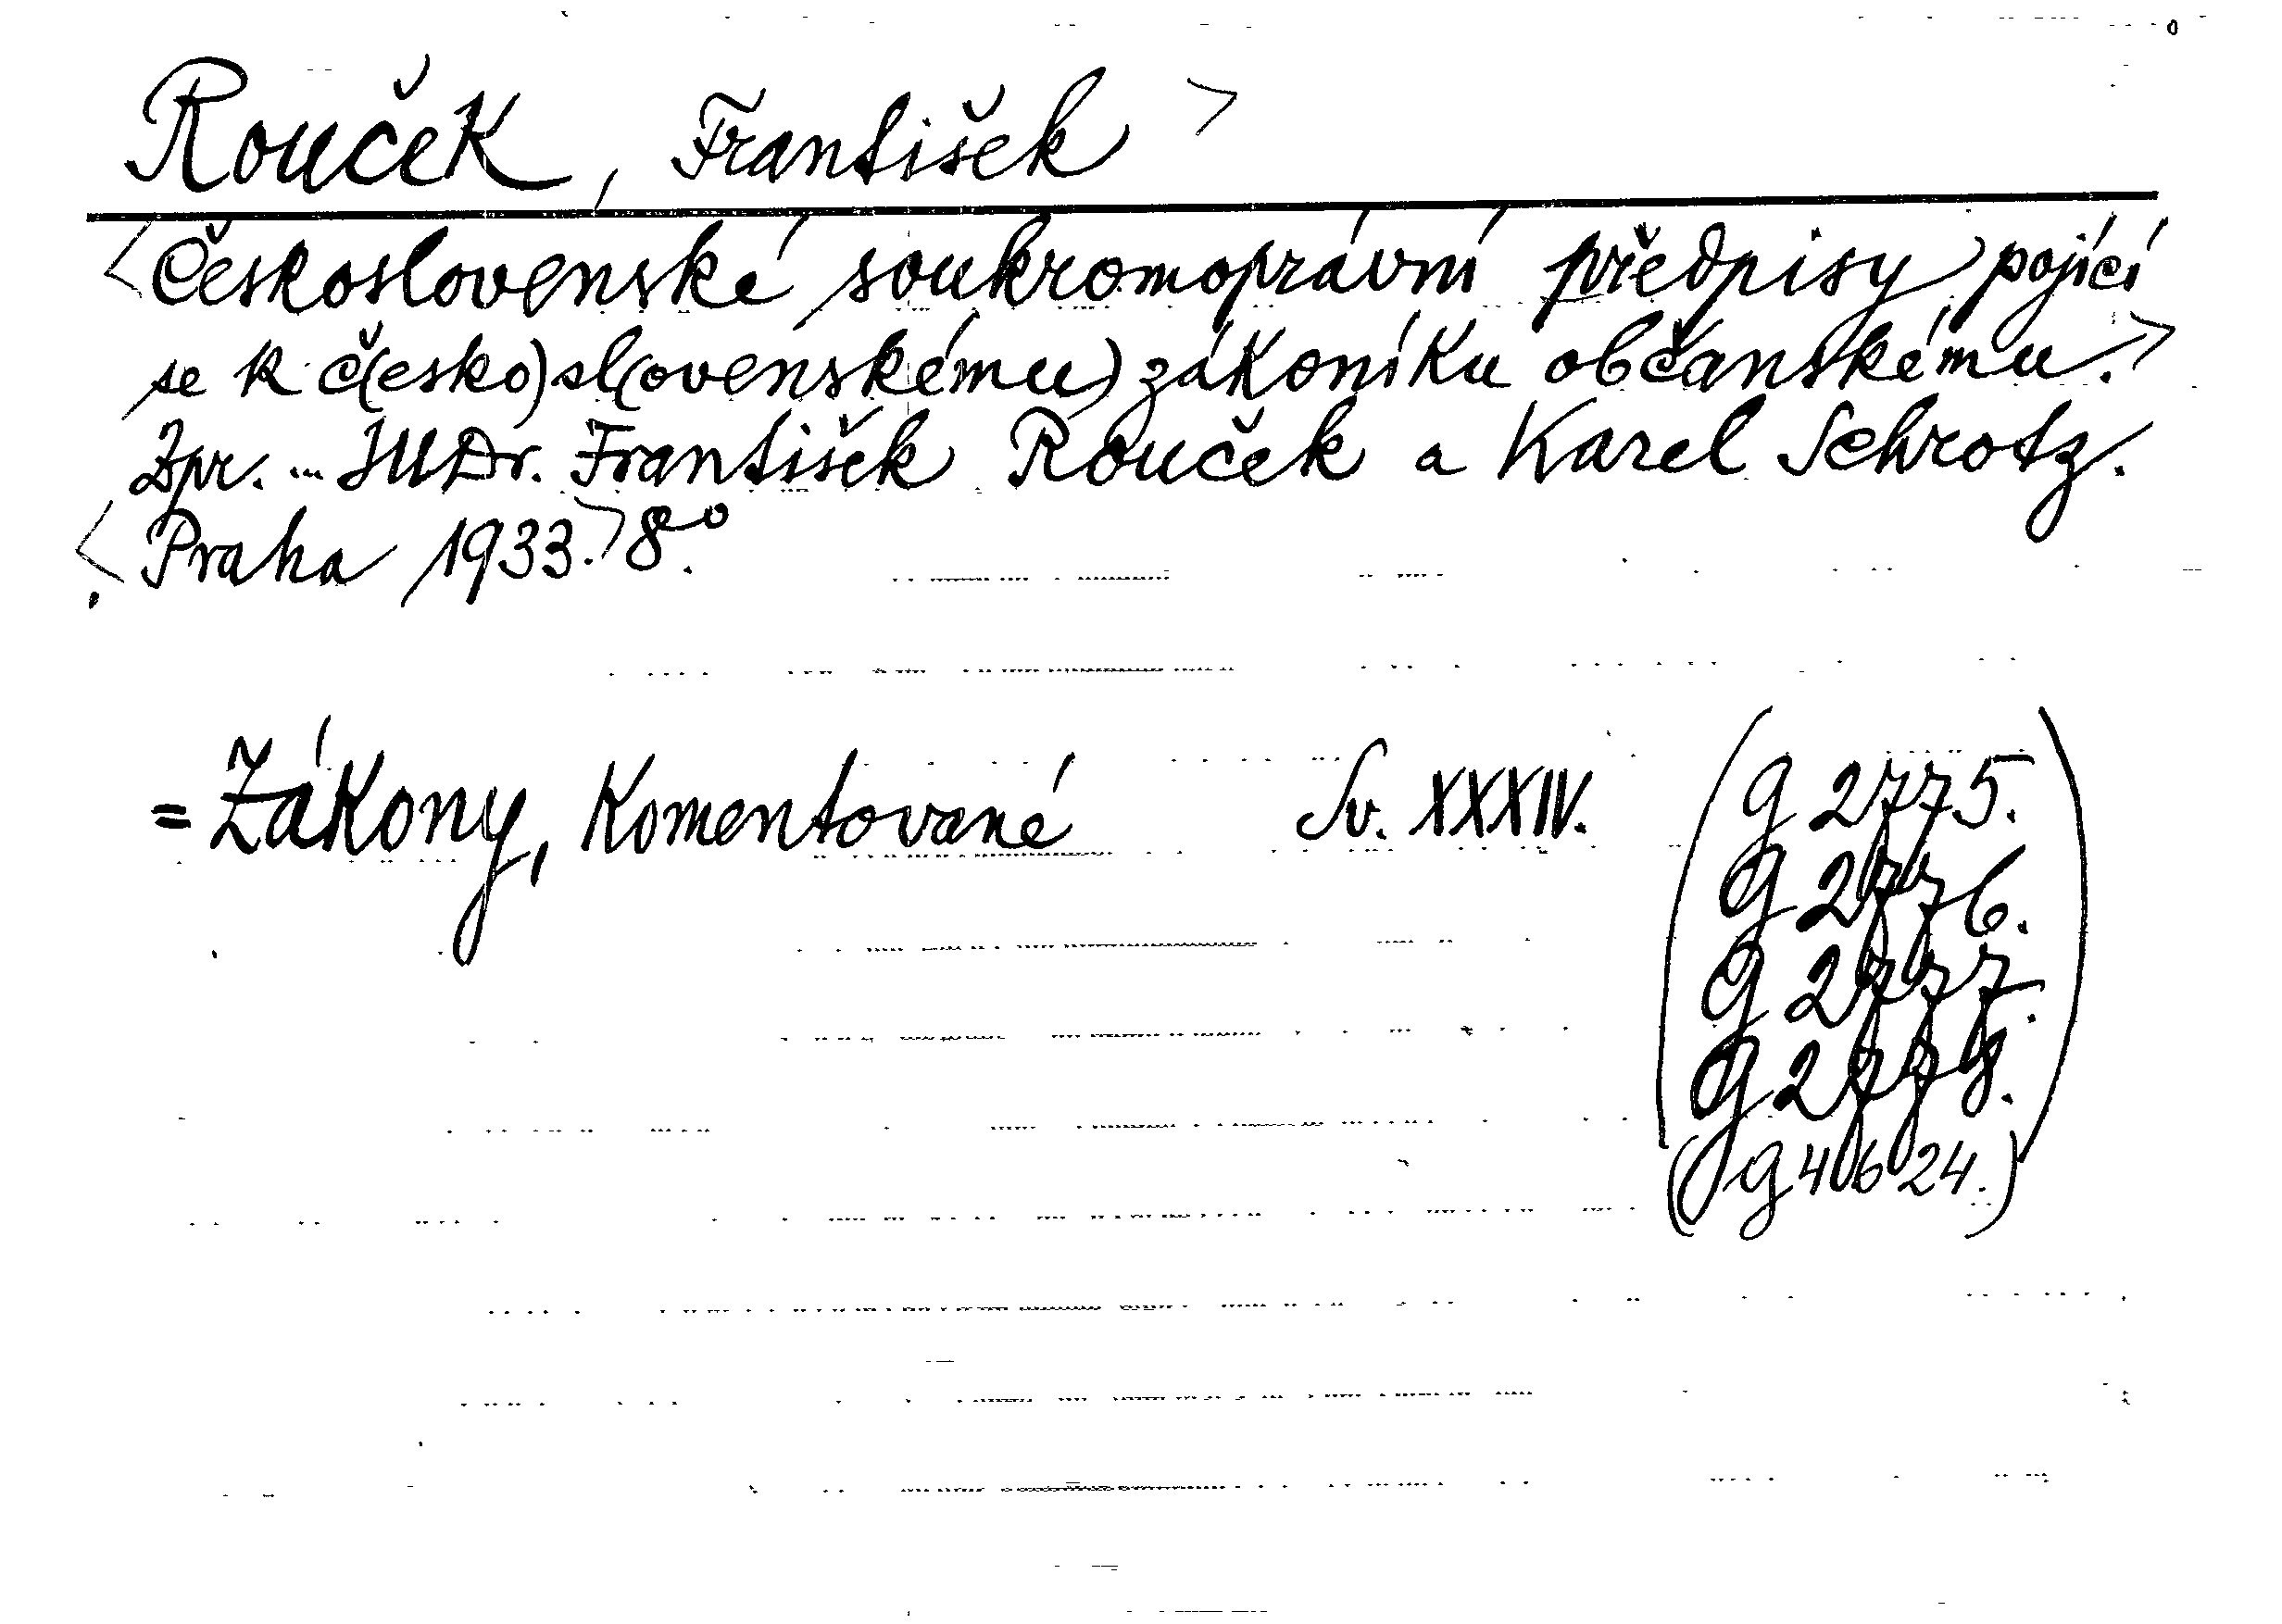 Rouček, František >
<Československé soukromoprávní předpisy pojící
se k č(esko)sl(ovenskému) zákoníku občanskému.>
Zpr. ... JUDr. František Rouček a Karel Schrotz.
<Praha 1933.> 8°.
= Zákony, Komentované Sv. XXXIV. (g 2775.
g 2776.
g 2777.
g 2778.)
(g 40624.)